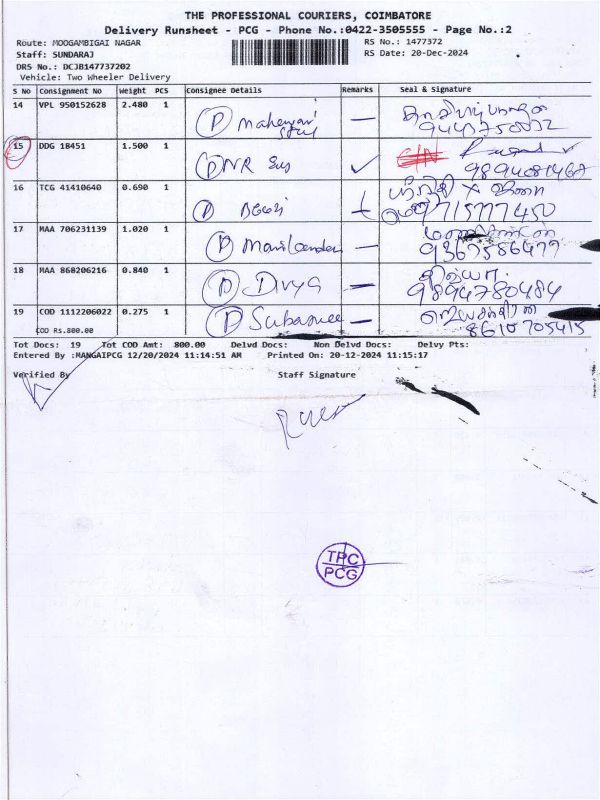 THE PROFESSIONAL COURIERS, COIMBATORE
Delivery Runsheet - PCG - Phone No.:0422-3505555 - Page No.:2
Route: MOOGAMBIGAI NAGAR
RS No.: 1477372
Staff: SUNDARAJ
RS Date: 20-Dec-2024
DRS No.: DCJB147737202
Vehicle: Two Wheeler Delivery
S No Consignment No Weight PCS Consignee Details Remarks Seal & Signature
14 VPL 950152628 2.480 1 D
15 DDG 18451 1.500 1 D NR
9894081462
16 TCG 41410640 0.690 1 D
9715777450
17 MAA 706231139 1.020 1 D
9367586477
18 MAA 868206216 0.840 1 D Divya
9894780484
19 COD 1112206022 0.275 1 D
8610705415
COD Rs.800.00
Tot Docs: 19 Tot COD Amt: 800.00 Delvd Docs: Non Delvd Docs: Delvy Pts:
Entered By :MANGAIPCG 12/20/2024 11:14:51 AM Printed On: 20-12-2024 11:15:17
Verified By Staff Signature
TPC
PCG